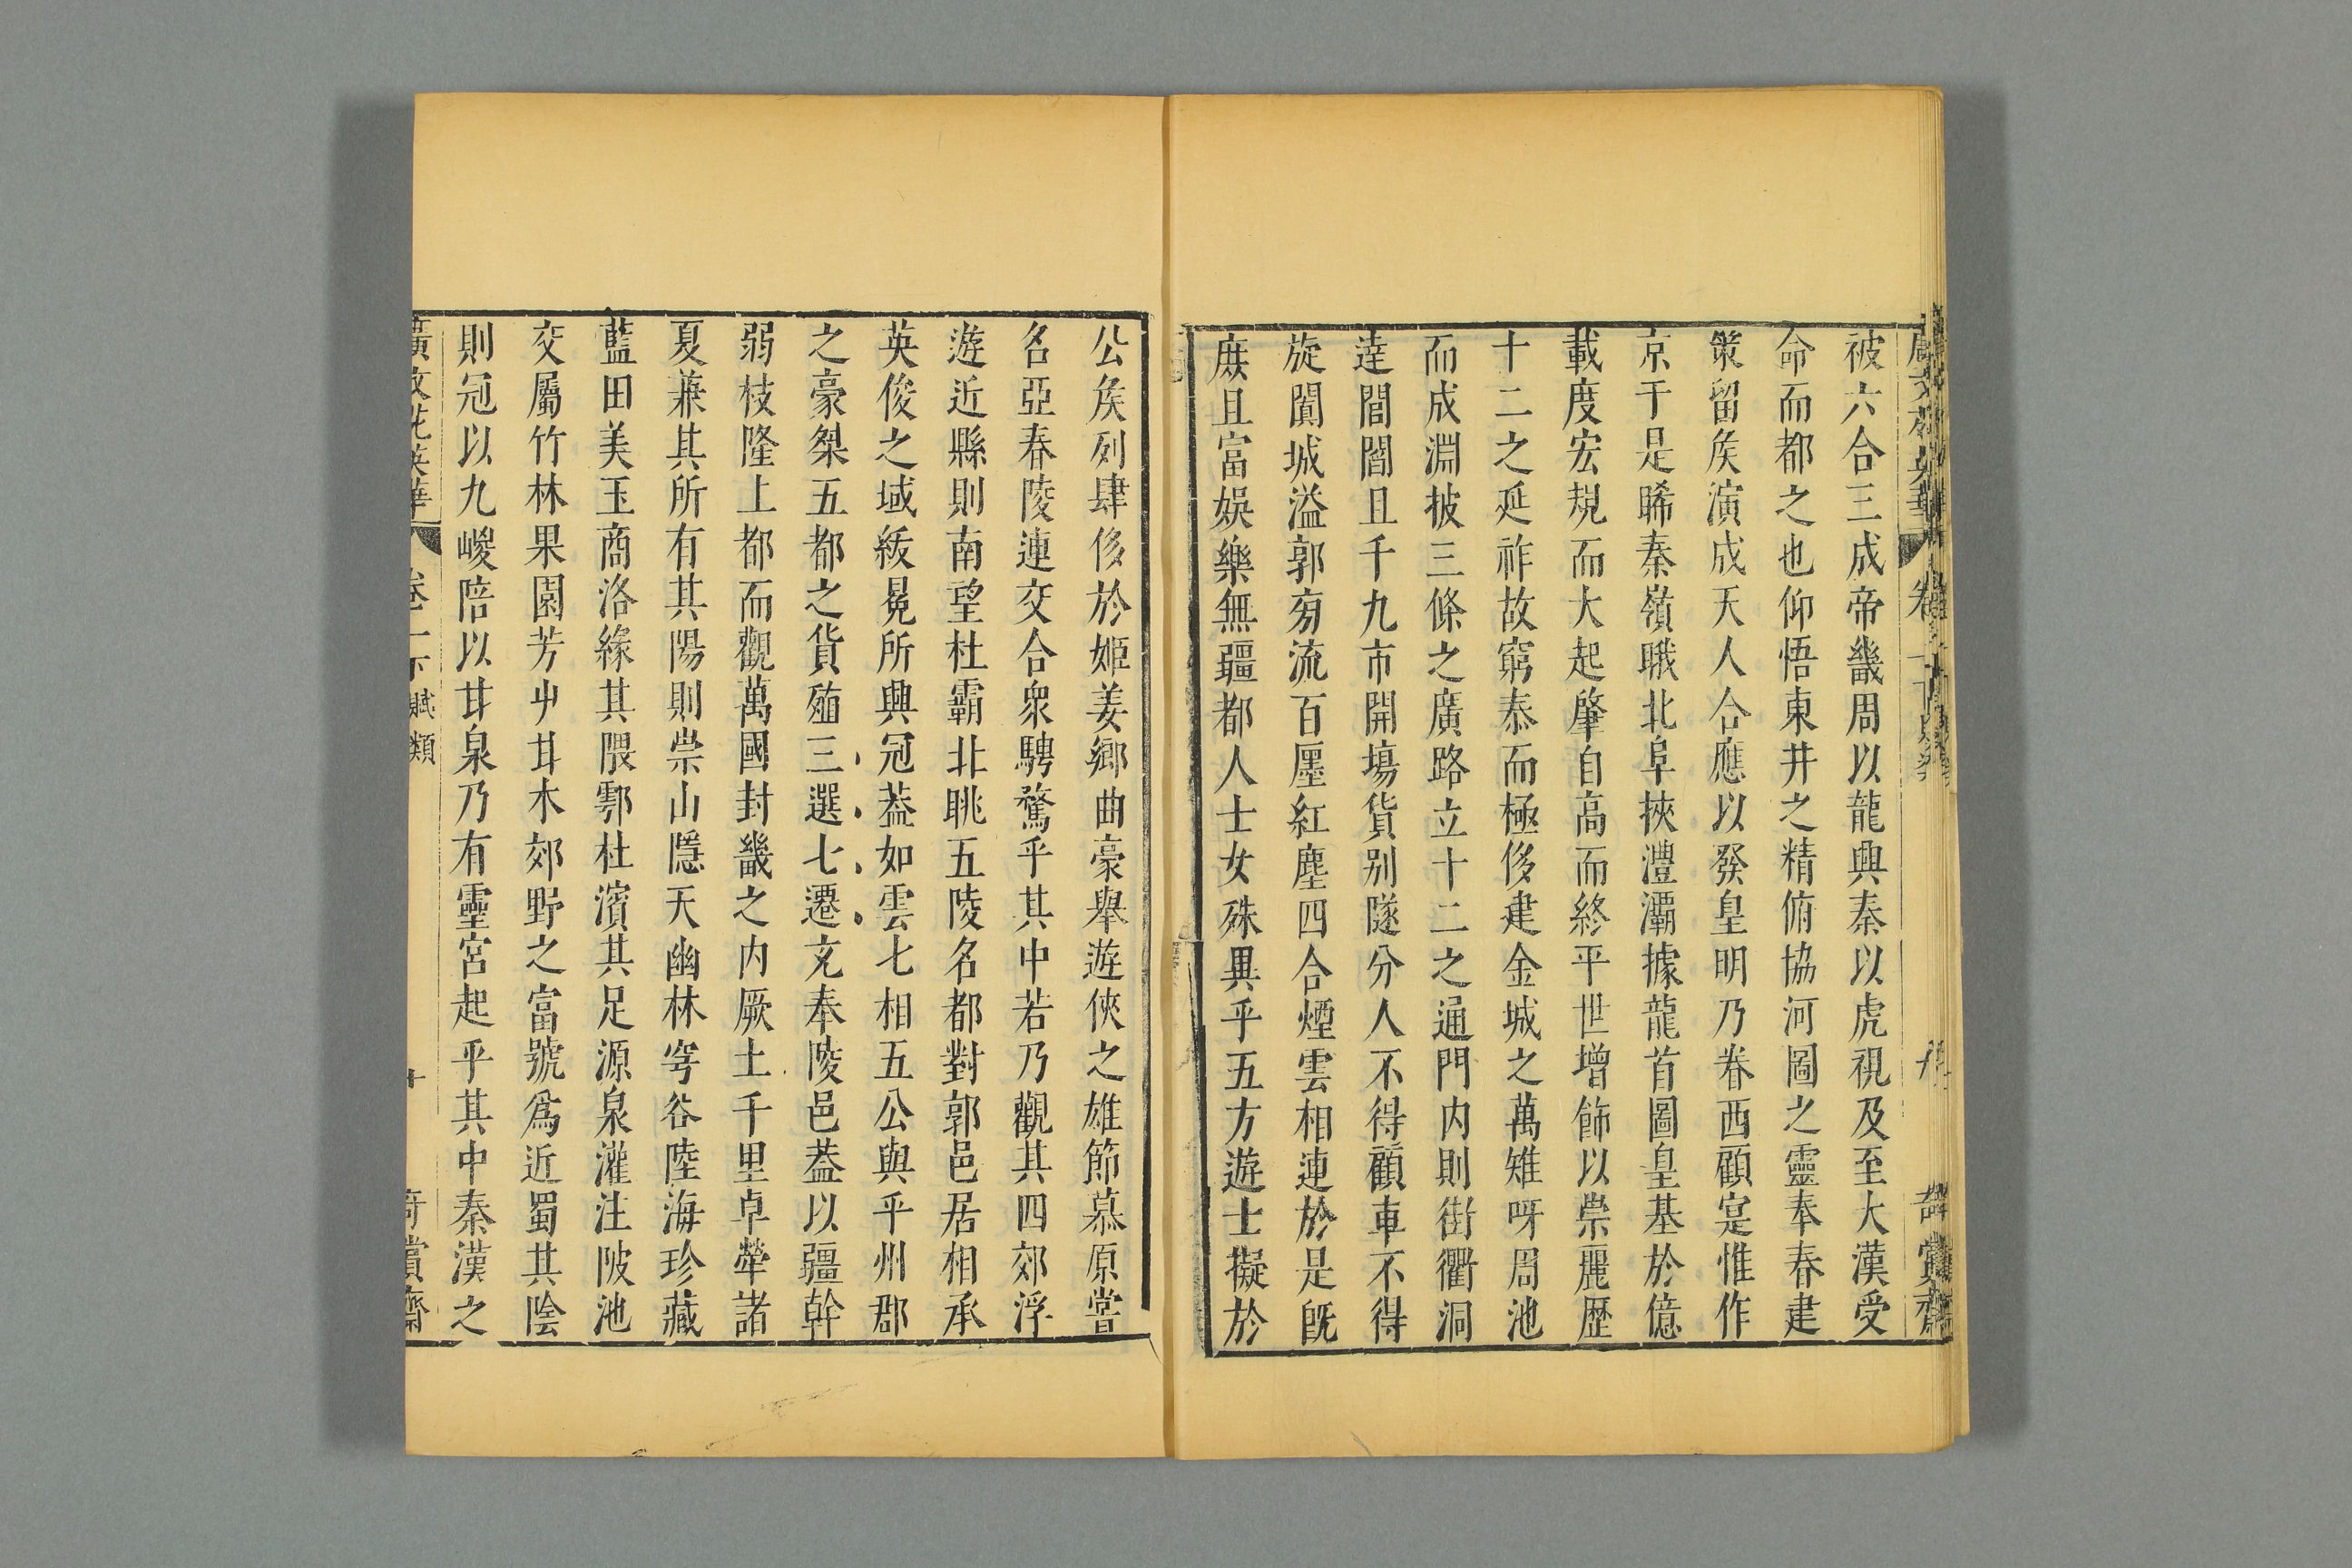 被六合三成帝畿周以龍興秦以虎視及至大漢受
命而都之也仰悟東井之精俯協河圖之靈奉春建
策留矦演成天人合應以發皇明乃眷西顧寔惟作
京于是睎秦嶺睋北阜挾灃灞據龍首圖皇基於億
載度宏規而大起肇自高而終平世增飾以崇麗歷
十二之延祚故窮泰而極侈建金城之萬雉呀周池
而成淵披三條之廣路立十二之通門内則街衢洞
達閭閻且千九市開場貨别隧分人不得顧車不得
旋闐城溢郭㫄流百廛紅塵四合煙雲相連於是旣
庶且富娛樂無疆都人士女殊異乎五方遊士擬於
公矦列肆侈於姬姜鄉曲豪舉遊俠之雄節慕原嘗
名亞春陵連交合衆騁騖乎其中若乃觀其四郊浮
遊近縣則南望杜霸北眺五陵名都對郭邑居相承
英俊之域紱冕所興冠葢如雲七相五公與乎州郡
之豪桀五都之貨殖三選七遷充奉陵邑葢以疆幹
弱枝隆上都而觀萬國封畿之内厥土千里卓犖諸
夏兼其所有其陽則崇山隱天幽林穹谷陸海珍藏
藍田美玉商洛緣其隈鄠杜濱其足源泉灌注陂池
交屬竹林果園芳屮甘木郊野之富號爲近蜀其陰
則冠以九嵕陪以甘泉乃有靈宮起乎其中秦漢之
廣文苑英華 卷一下 賦類 十 奇賞齋